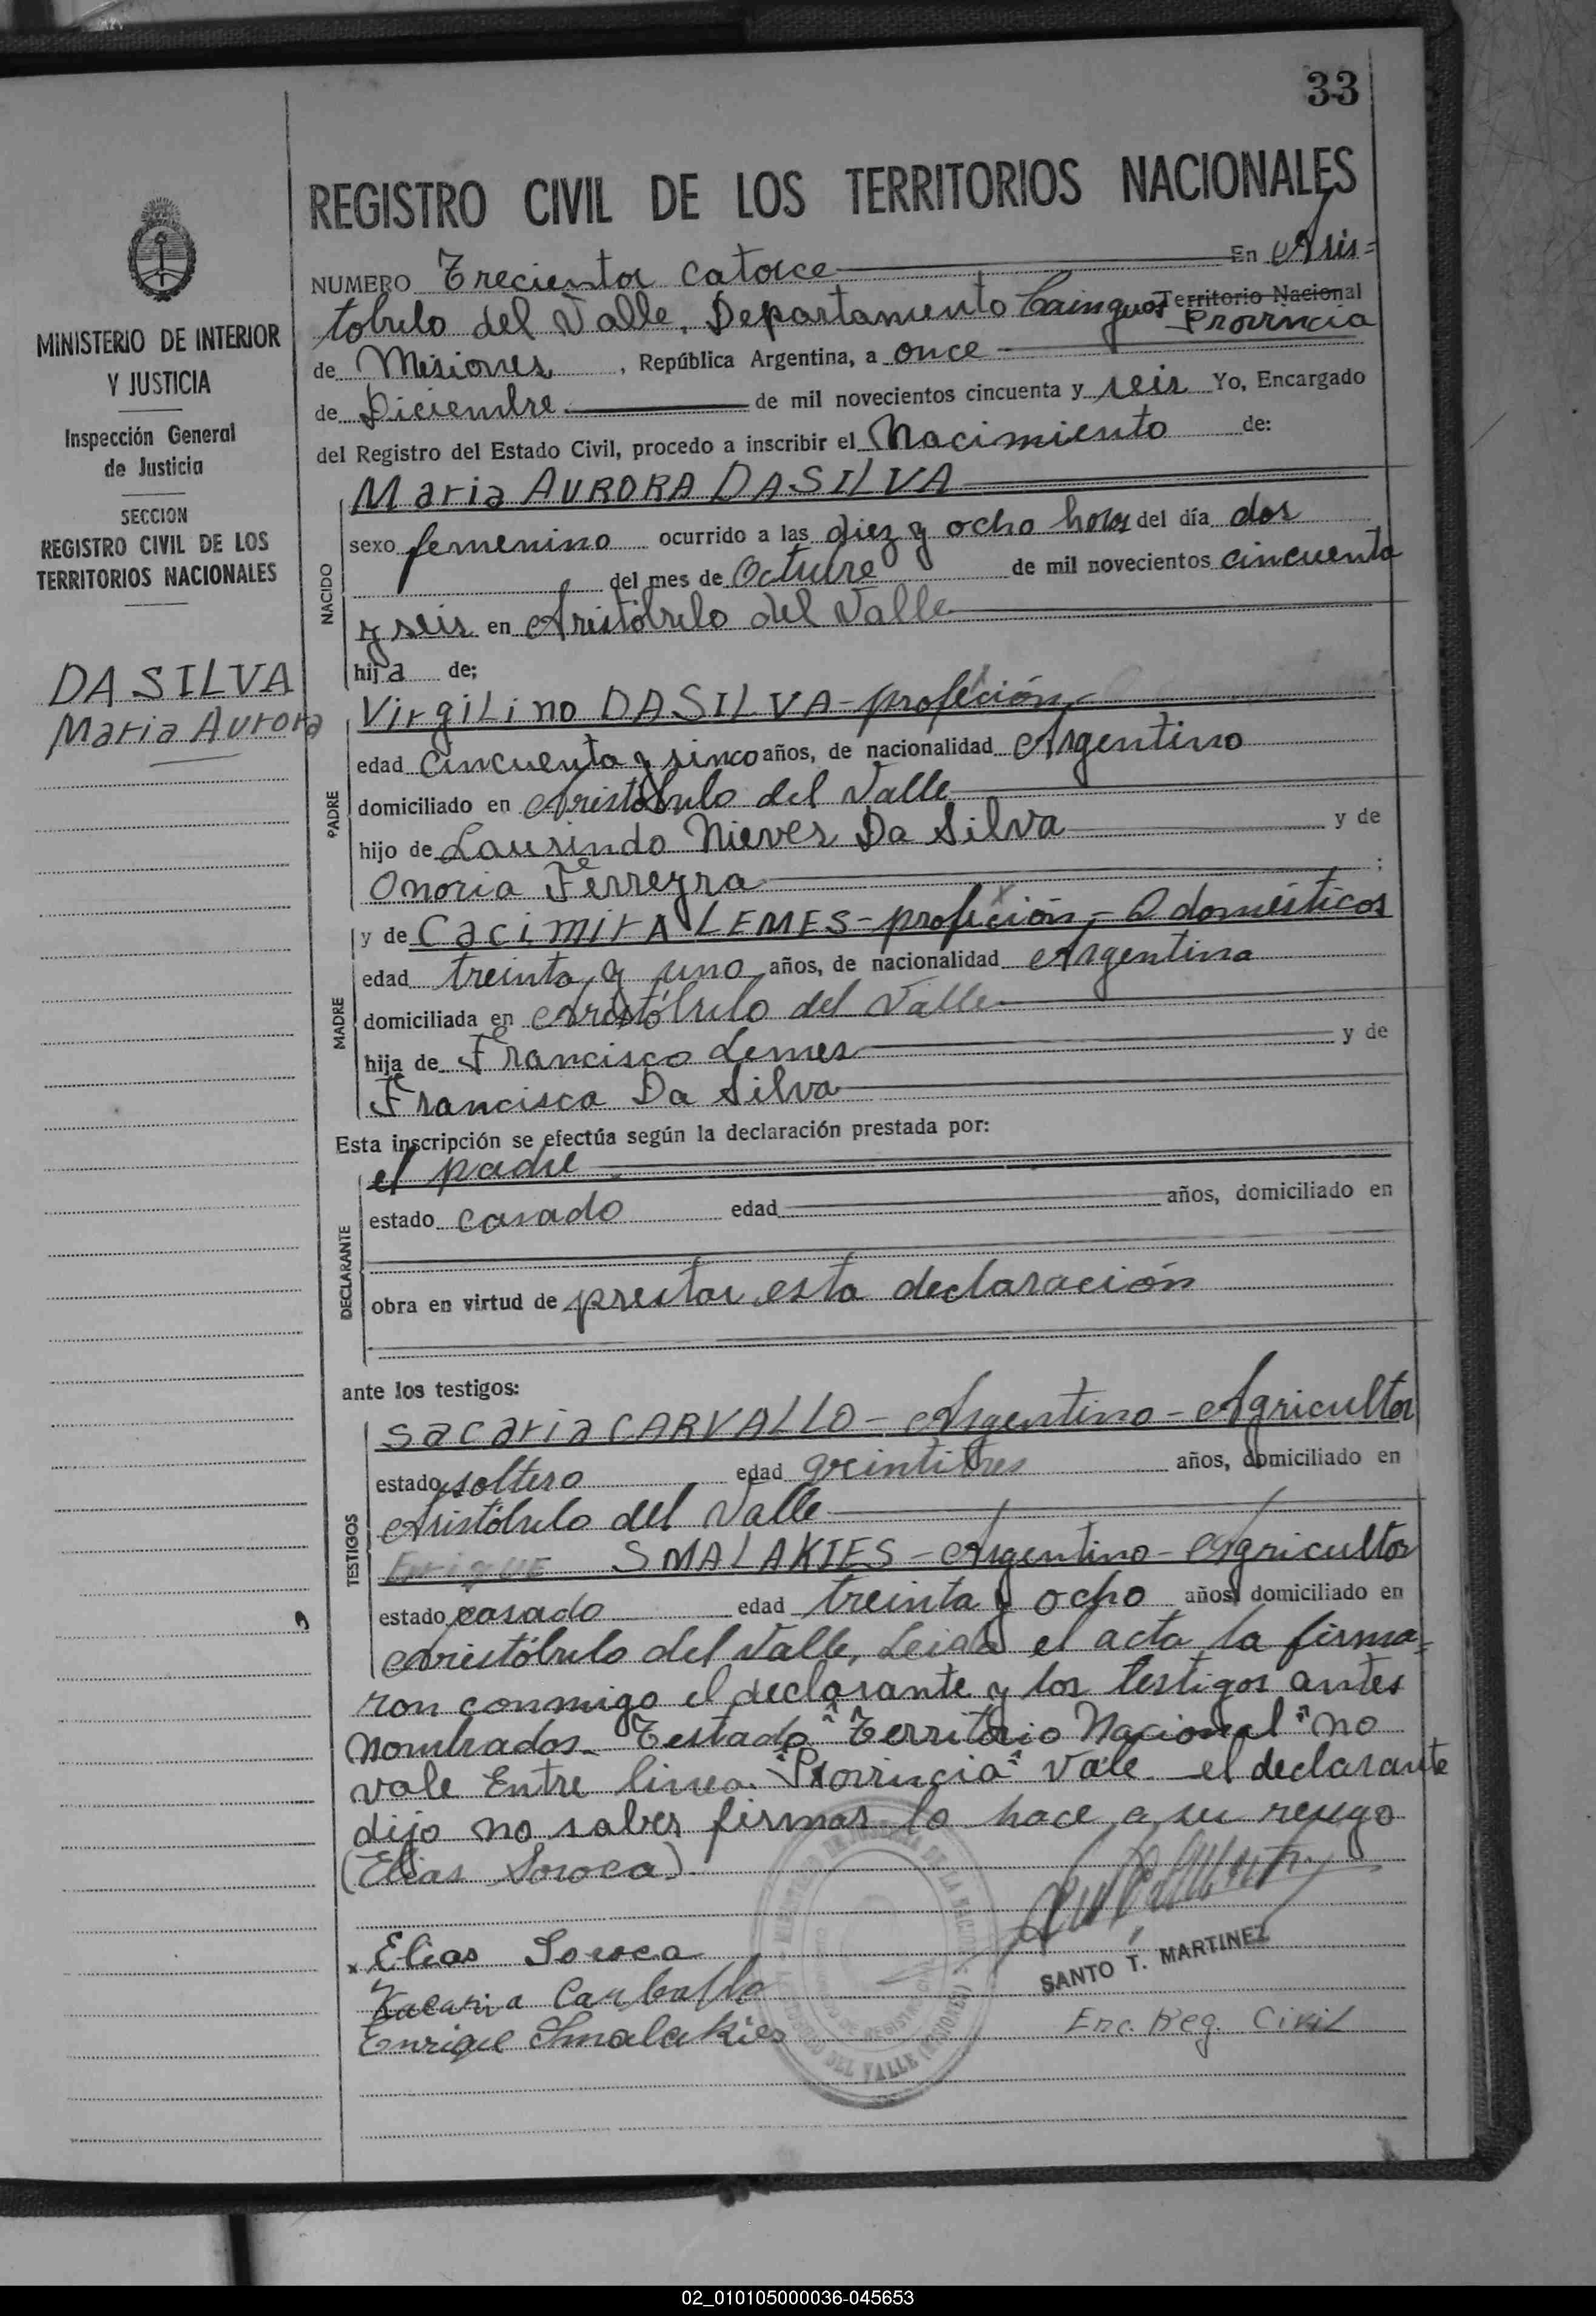 33
REGISTRO CIVIL DE LOS TERRITORIOS NACIONALES
MINISTERIO DE INTERIOR
Y JUSTICIA
Inspección General
de Justicia
SECCION
REGISTRO CIVIL DE LOS
TERRITORIOS NACIONALES
DASILVA
Maria Aurora
NUMERO Trecientos catorce En Aris=
tobulo del Valle, Departamento Cainguas Territorio Nacional
Provincia
de Misiones, República Argentina, a once
de Diciembre de mil novecientos cincuenta y seis Yo, Encargado
del Registro del Estado Civil, procedo a inscribir el Nacimiento de:
NACIDO
Maria AURORA DASILVA
sexo femenino ocurrido a las diez y ocho horas del día dos
del mes de Octubre de mil novecientos cincuenta
y seis en Aristóbulo del Valle
hija de;
PADRE
VirgiLino DASILVA - profeción,-
edad cincuenta y sinco años, de nacionalidad Argentino
domiciliado en Aristóbulo del Valle
hijo de Laurindo Nieves Da Silva y de
Onoria Ferreyra ;
MADRE
y de CacimirA LEMES - profeción,- Q domésticos
edad treinta y uno años, de nacionalidad Argentina
domiciliada en Aristóbulo del Valle
hija de Francisco Lemes y de
Francisca Da Silva
Esta inscripción se efectúa según la declaración prestada por:
DECLARANTE
el padre
estado casado edad años, domiciliado en
obra en virtud de prestar esta declaración
ante los testigos:
TESTIGOS
Sacaria CARVALLO - Argentino - Agricultor
estado soltero edad veintitres años, domiciliado en
Aristóbulo del Valle
EnriqUE SMALAKIES - Argentino - Agricultor
estado casado edad treinta y ocho años, domiciliado en
Aristóbulo del Valle, Leida el acta la firma=
ron conmigo el declarante y los testigos antes
nombrados.- Testado "Territorio Nacional" no
vale Entre linea "Provincia" vale el declarante
dijo no saber firmar lo hace a su ruego
(Elias Soroca)
x Elias Soroca
Zacaria Carballo
Enrique Smalakies
SANTO T. MARTINEZ
Enc. Reg. Civil
DEL VALLE (MISIONES)
02_010105000036-045653